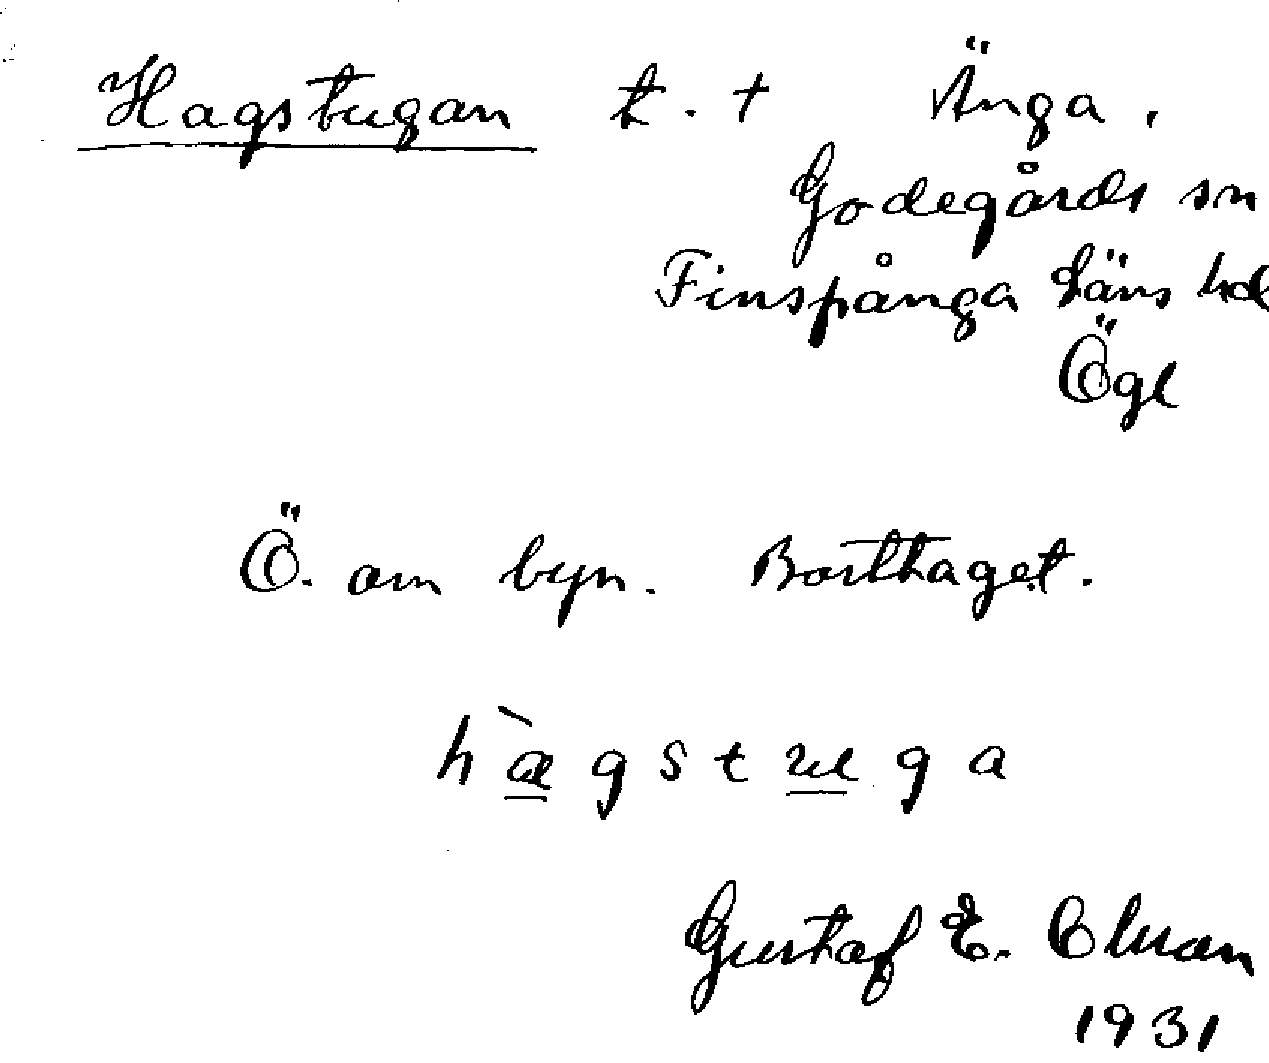 Hagstugan t. + Änga,
Godegårds sn
Finspånga läns hd
Ögl
Ö. om byn. Borthaget.
hægstuga
Gustaf E.
1931